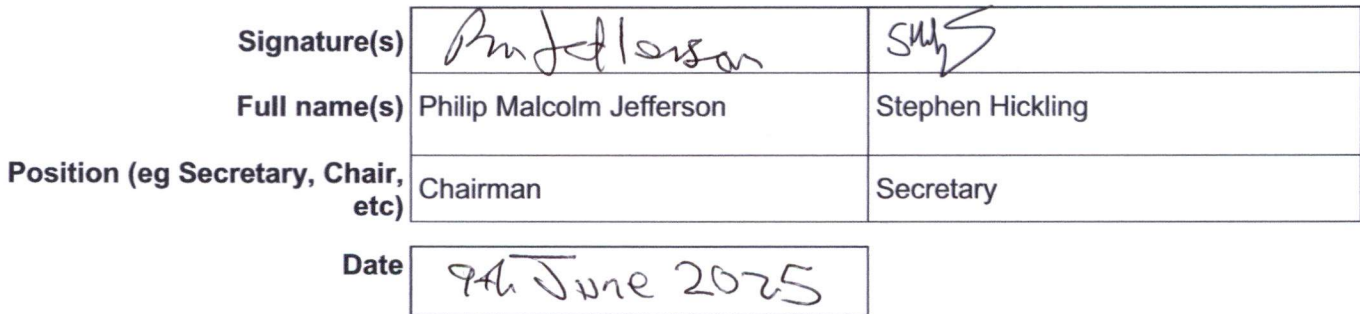 Signature(s) PMJefferson
Full name(s) Philip Malcolm Jefferson Stephen Hickling
Position (eg Secretary, Chair, etc) Chairman Secretary
Date 9th June 2025